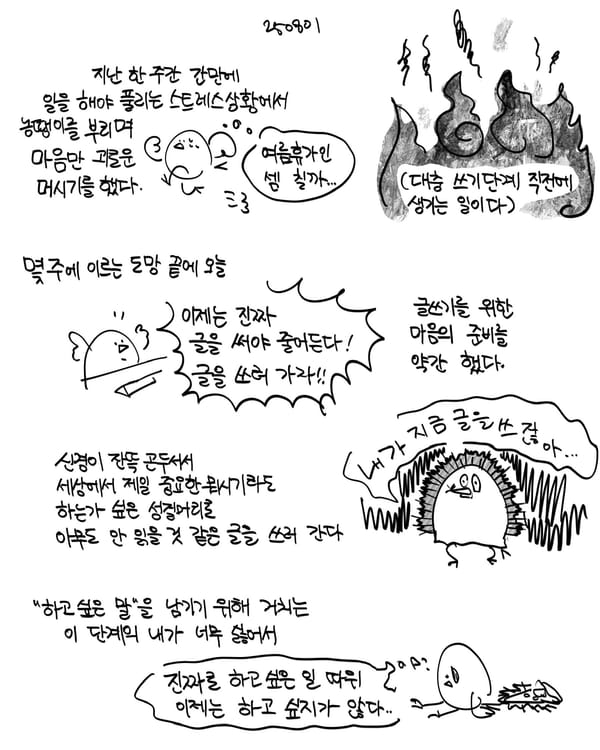 250801
지난 한 주간 간만에
일을 해야 풀리는 스트레스상황에서
농땡이를 부리며
마음만 괴로운
머시기를 했다.
여름휴가인
셈 칠까...
(대충 쓰기단계 직전에
생기는 일이다)
몇 주에 이르는 도망 끝에 오늘
이제는 진짜
글을 써야 줄어든다!
글을 쓰러 가라!!
글쓰기를 위한
마음의 준비를
약간 했다.
내가 지금 글을 쓰잖아...
신경이 잔뜩 곤두서서
세상에서 제일 중요한 뭐시기라도
하는가 싶은 성질머리로
아무도 안 읽을 것 같은 글을 쓰러 간다
"하고 싶은 말"을 남기기 위해 거치는
이 단계의 내가 너무 싫어서
진짜로 하고 싶은 일 따위
이제는 하고 싶지가 않다..